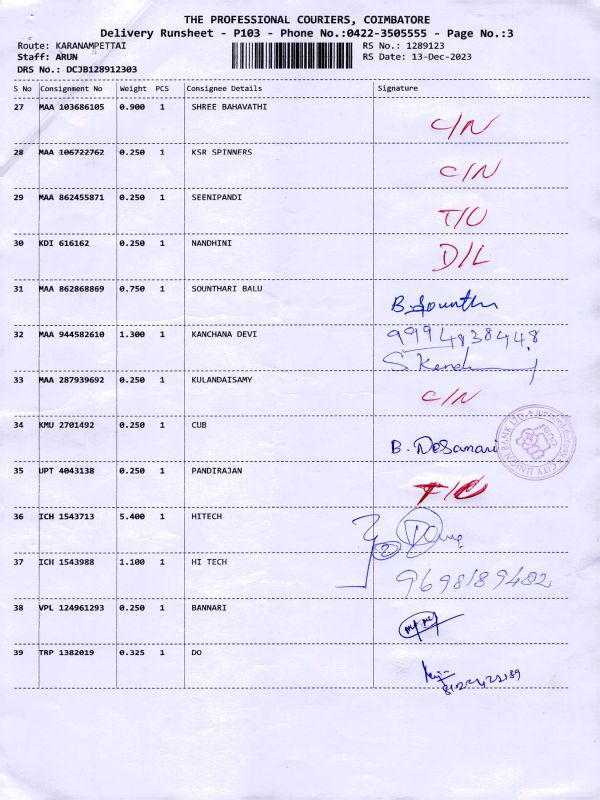 THE PROFESSIONAL COURIERS, COIMBATORE
Delivery Runsheet - P103 - Phone No.:0422-3505555 - Page No.:3
Route: KARANAMPETTAI RS No.: 1289123
Staff: ARUN RS Date: 13-Dec-2023
DRS No.: DCJB128912303
S No Consignment No Weight PCS Consignee Details Signature
27 MAA 103686105 0.900 1 SHREE BAHAVATHI C/N
28 MAA 106722762 0.250 1 KSR SPINNERS C/N
29 MAA 862455871 0.250 1 SEENIPANDI T/O
30 KDI 616162 0.250 1 NANDHINI D/L
31 MAA 862868869 0.750 1 SOUNTHARI BALU B.
32 MAA 944582610 1.300 1 KANCHANA DEVI 9994838448
33 MAA 287939692 0.250 1 KULANDAISAMY C/N
34 KMU 2701492 0.250 1 CUB B. CITY UNION BANK LTD.
35 UPT 4043138 0.250 1 PANDIRAJAN T/O
36 ICH 1543713 5.400 1 HITECH 2
37 ICH 1543988 1.100 1 HI TECH 9698189482
38 VPL 124961293 0.250 1 BANNARI
39 TRP 1382019 0.325 1 DO